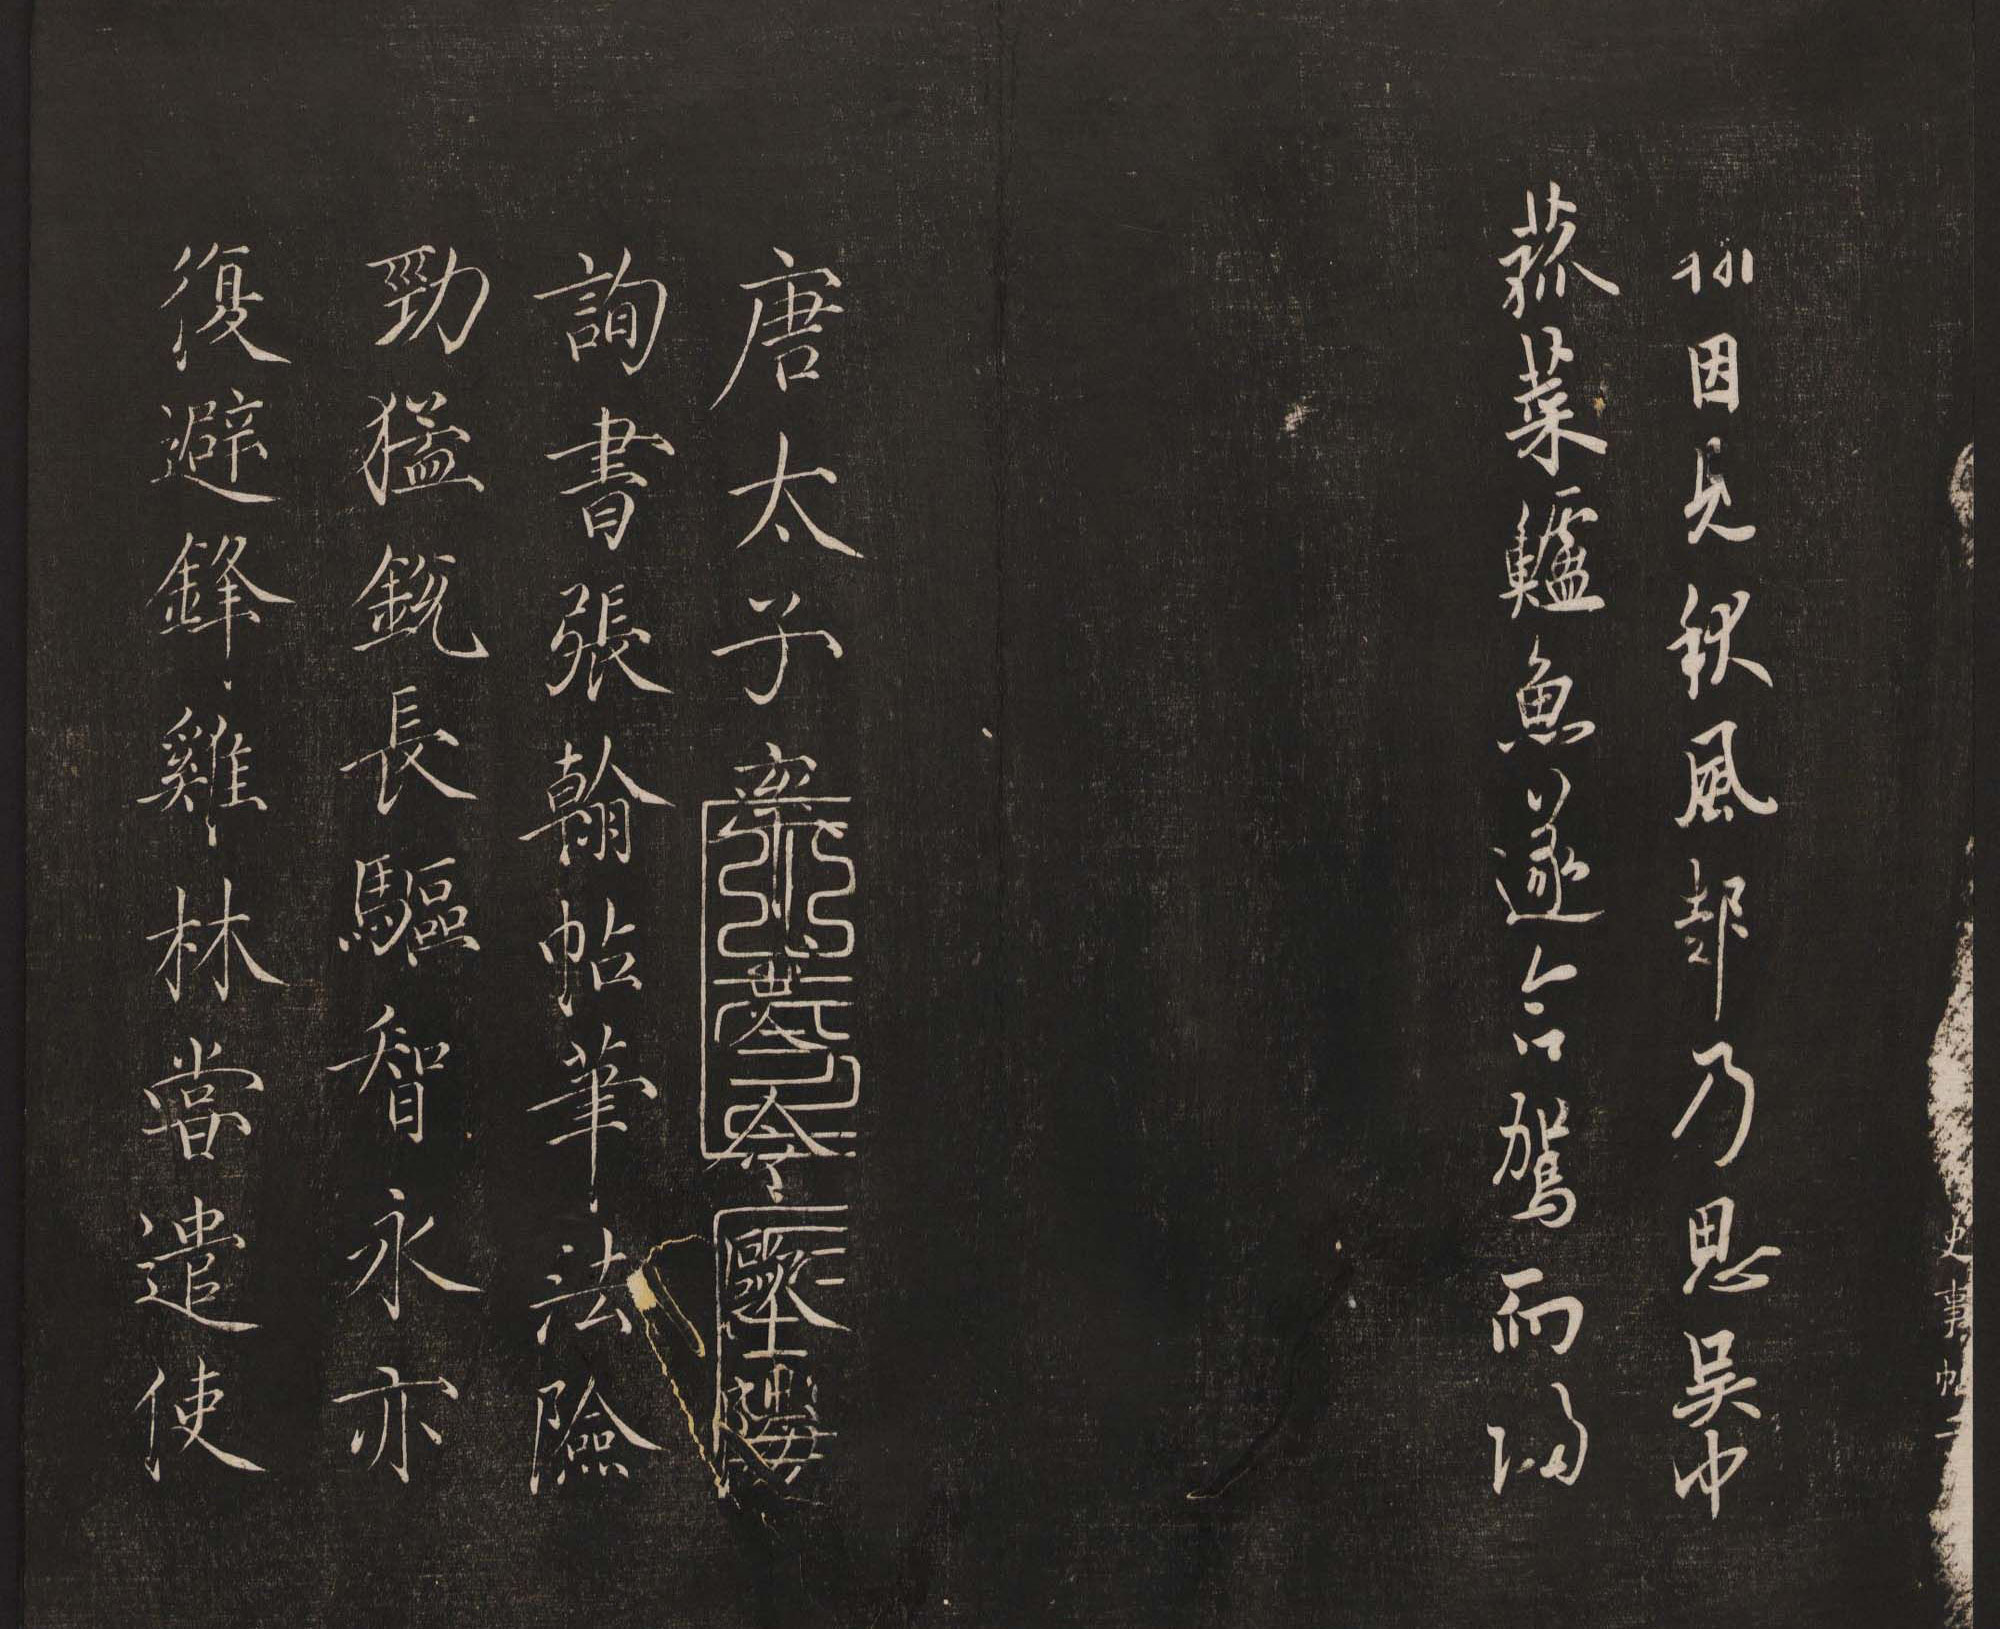 史事帖二
因見秋風起乃思吳中
菰菜鱸魚遂命駕而歸
唐太子率更令歐陽
詢書張翰帖筆法險
勁猛銳長驅智永亦
復避鋒雞林當遣使